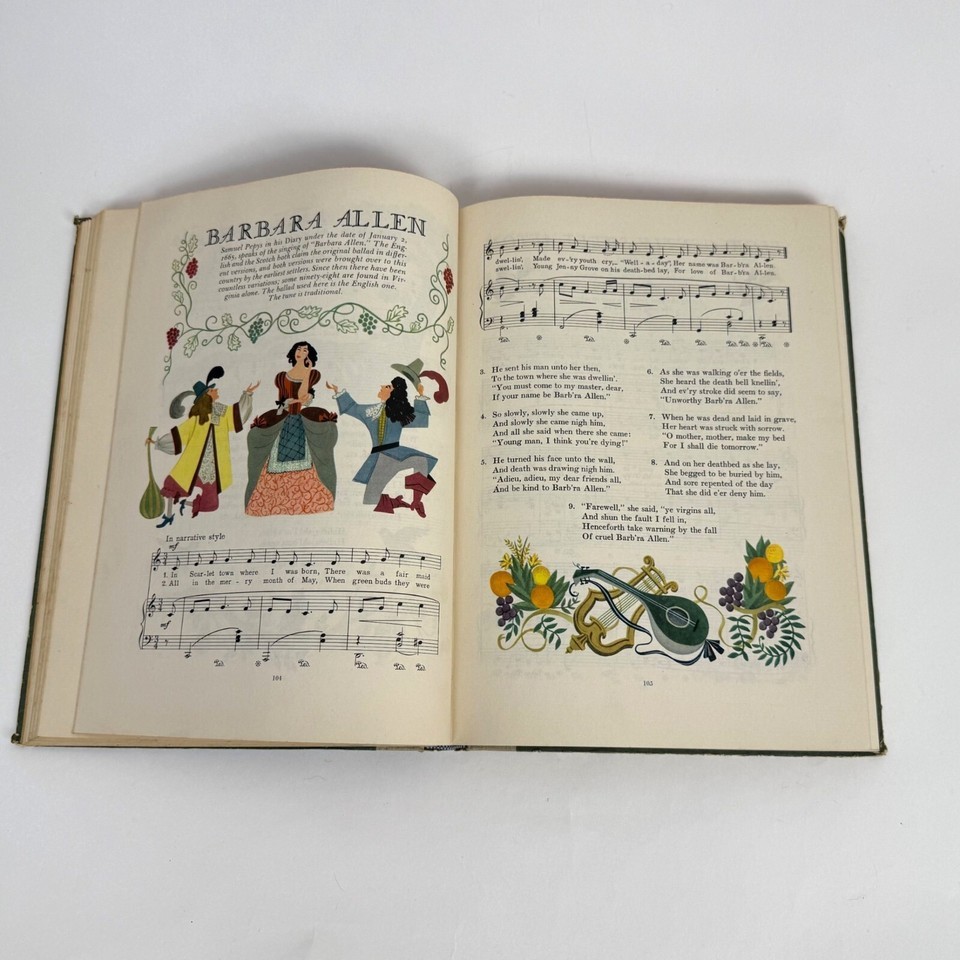 BARBARA ALLEN
Samuel Pepys in his Diary under the date of January 2,
1665, speaks of the singing of "Barbara Allen." The Eng-
lish and the Scotch both claim the original ballad in differ-
ent versions, and both versions were brought over to this
country by the earliest settlers. Since then there have been
countless variations; some ninety-eight are found in Vir-
ginia alone. The ballad used here is the English one.
The tune is traditional.
In narrative style
mf
1. In Scar-let town where I was born, There was a fair maid
2. All in the mer-ry month of May, When green buds they were
mf
104
dwel-lin', Made ev-'ry youth cry, "Well-a-day", Her name was Bar-b'ra Al-len.
swel-lin', Young Jem-my Grove on his death-bed lay, For love of Bar-b'ra Al-len.
3. He sent his man unto her then,
To the town where she was dwellin'.
"You must come to my master, dear,
If your name be Barb'ra Allen."
4. So slowly, slowly she came up,
And slowly she came nigh him,
And all she said when there she came:
"Young man, I think you're dying!"
5. He turned his face unto the wall,
And death was drawing nigh him.
"Adieu, adieu, my dear friends all,
And be kind to Barb'ra Allen."
6. As she was walking o'er the fields,
She heard the death bell knellin',
And ev'ry stroke did seem to say,
"Unworthy Barb'ra Allen."
7. When he was dead and laid in grave,
Her heart was struck with sorrow.
"O mother, mother, make my bed
For I shall die tomorrow."
8. And on her deathbed as she lay,
She begged to be buried by him,
And sore repented of the day
That she did e'er deny him.
9. "Farewell," she said, "ye virgins all,
And shun the fault I fell in,
Henceforth take warning by the fall
Of cruel Barb'ra Allen."
105